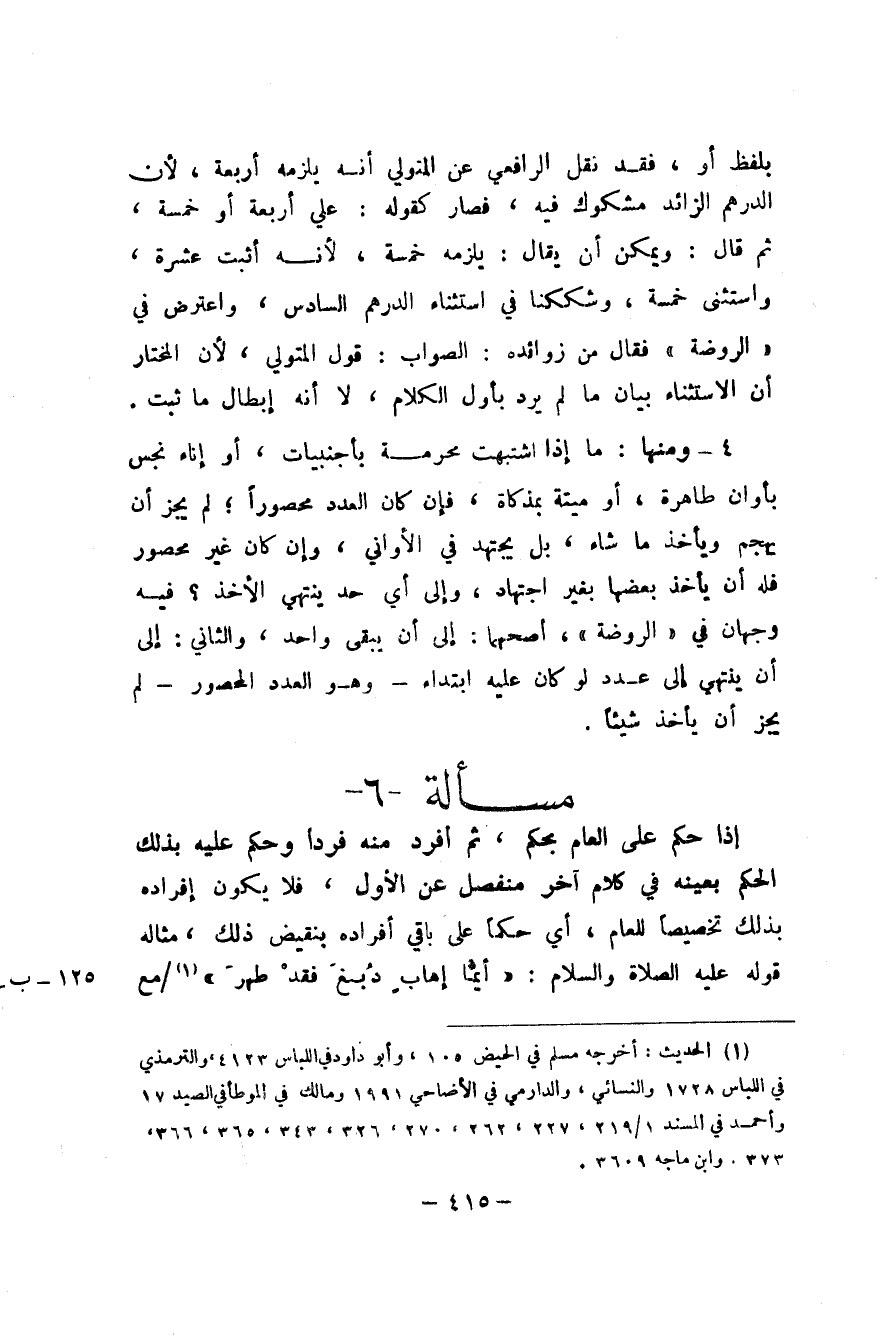 بلفظ أو ، فقد نقل الرافعي عن المتولي أنه يلزمه أربعة ، لأن
الدرهم الزائد مشكوك فيه ، فصار كقوله : علي أربعة أو خمسة ،
ثم قال : ويمكن أن يقال : يلزمه خمسة ، لأنه أثبت عشرة ،
واستثنى خمسة ، وشككنا في استثناء الدرهم السادس ، واعترض في
« الروضة » فقال من زوائده : الصواب : قول المتولي ، لأن المختار
أن الاستثناء بيان ما لم يرد بأول الكلام ، لا أنه إبطال ما ثبت .
٤ – ومنها : ما إذا اشتبهت محرمة بأجنبيات ، أو إناء نجس
بأوان طاهرة ، أو ميتة بمذكاة ، فإن كان العدد محصوراً ؛ لم يجز أن
يهجم ويأخذ ما شاء ، بل يجتهد في الأواني ، وإن كان غير محصور
فله أن يأخذ بعضها بغير اجتهاد ، وإلى أي حد ينتهي الأخذ ؟ فيه
وجهان في « الروضة » ، أصحهما : إلى أن يبقى واحد ، والثاني : إلى
أن ينتهي إلى عدد لو كان عليه ابتداء – وهو العدد المحصور – لم
يجز أن يأخذ شيئاً .
مسألة -٦-
إذا حكم على العام بحكم ، ثم أفرد منه فرداً وحكم عليه بذلك
الحكم بعينه في كلام آخر منفصل عن الأول ، فلا يكون إفراده
بذلك تخصيصاً للعام ، أي حكماً على باقي أفراده بنقيض ذلك ، مثاله
قوله عليه الصلاة والسلام : « أيُّما إهابٍ دُبغَ فقدْ طهرَ » (١) /مع
١٢٥ – ب –
(١) الحديث : أخرجه مسلم في الحيض ١٠٥ ، وأبو داود في اللباس ٤١٢٣ ، والترمذي
في اللباس ١٧٢٨ والنسائي ، والدارمي في الأضاحي ١٩٩١ ومالك في الموطأ في الصيد ١٧
وأحمد في المسند ٢١٩/١ ، ٢٢٧ ، ٢٦٢ ، ٢٧٠ ، ٣٢٦ ، ٣٤٣ ، ٣٦٥ ، ٣٦٦ ،
٣٧٣ . وابن ماجه ٣٦٠٩ .
– ٤١٥ –